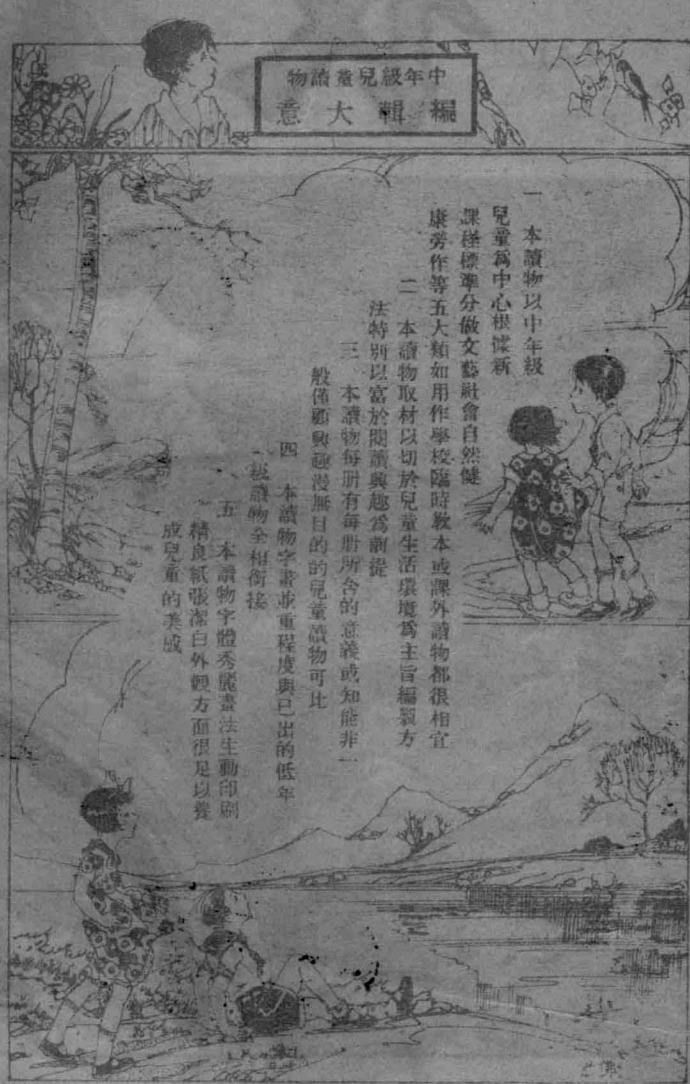 中年級兒童讀物
編輯大意
一 本讀物以中年級
兒童爲中心根據新
課程標準分做文藝社會自然健
康勞作等五大類如用作學校臨時教本或課外讀物都很相宜
二 本讀物取材以切於兒童生活環境爲主旨編製方
法特別以富於閱讀興趣爲前提
三 本讀物每册有每册所含的意義或知能非一
般僅顧興趣漫無目的的兒童讀物可比
四 本讀物字畫並重程度與已出的低年
級讀物全相銜接
五 本讀物字體秀麗畫法生動印刷
精良紙張潔白外觀方面很足以養
成兒童的美感